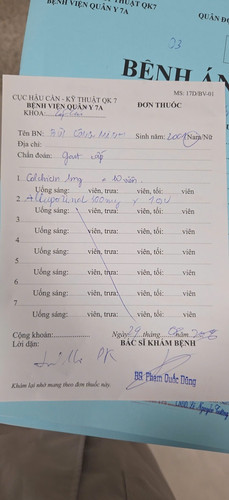 BỆNH VIỆN QUÂN Y 7A
QUÂN ĐO
23
BỆNH Á
MS: 17D/BV-01
CỤC HẬU CẦN - KỸ THUẬT QK 7
BỆNH VIỆN QUÂN Y 7A
ĐƠN THUỐC
KHOA:
Tên BN: BÙI CÔNG Sinh năm: Nam/Nữ
Địa chỉ:
Chẩn đoán: gout cấp
1 Colchicin 1mg x 10 viên
Uống sáng: viên, trưa: viên, tối: viên
2 Allopurinol 300mg x 10v
Uống sáng: viên, trưa: viên, tối: viên
3
Uống sáng: viên, trưa: viên, tối: viên
4
Uống sáng: viên, trưa: viên, tối: viên
5
Uống sáng: viên, trưa: viên, tối: viên
6
Uống sáng: viên, trưa: viên, tối: viên
7
Uống sáng: viên, trưa: viên, tối: viên
Cộng khoản: Ngày 29 tháng năm
Lời dặn: BÁC SĨ KHÁM BỆNH
BS. Phạm Quốc Dũng
Khám lại nhớ mang theo đơn thuốc này.